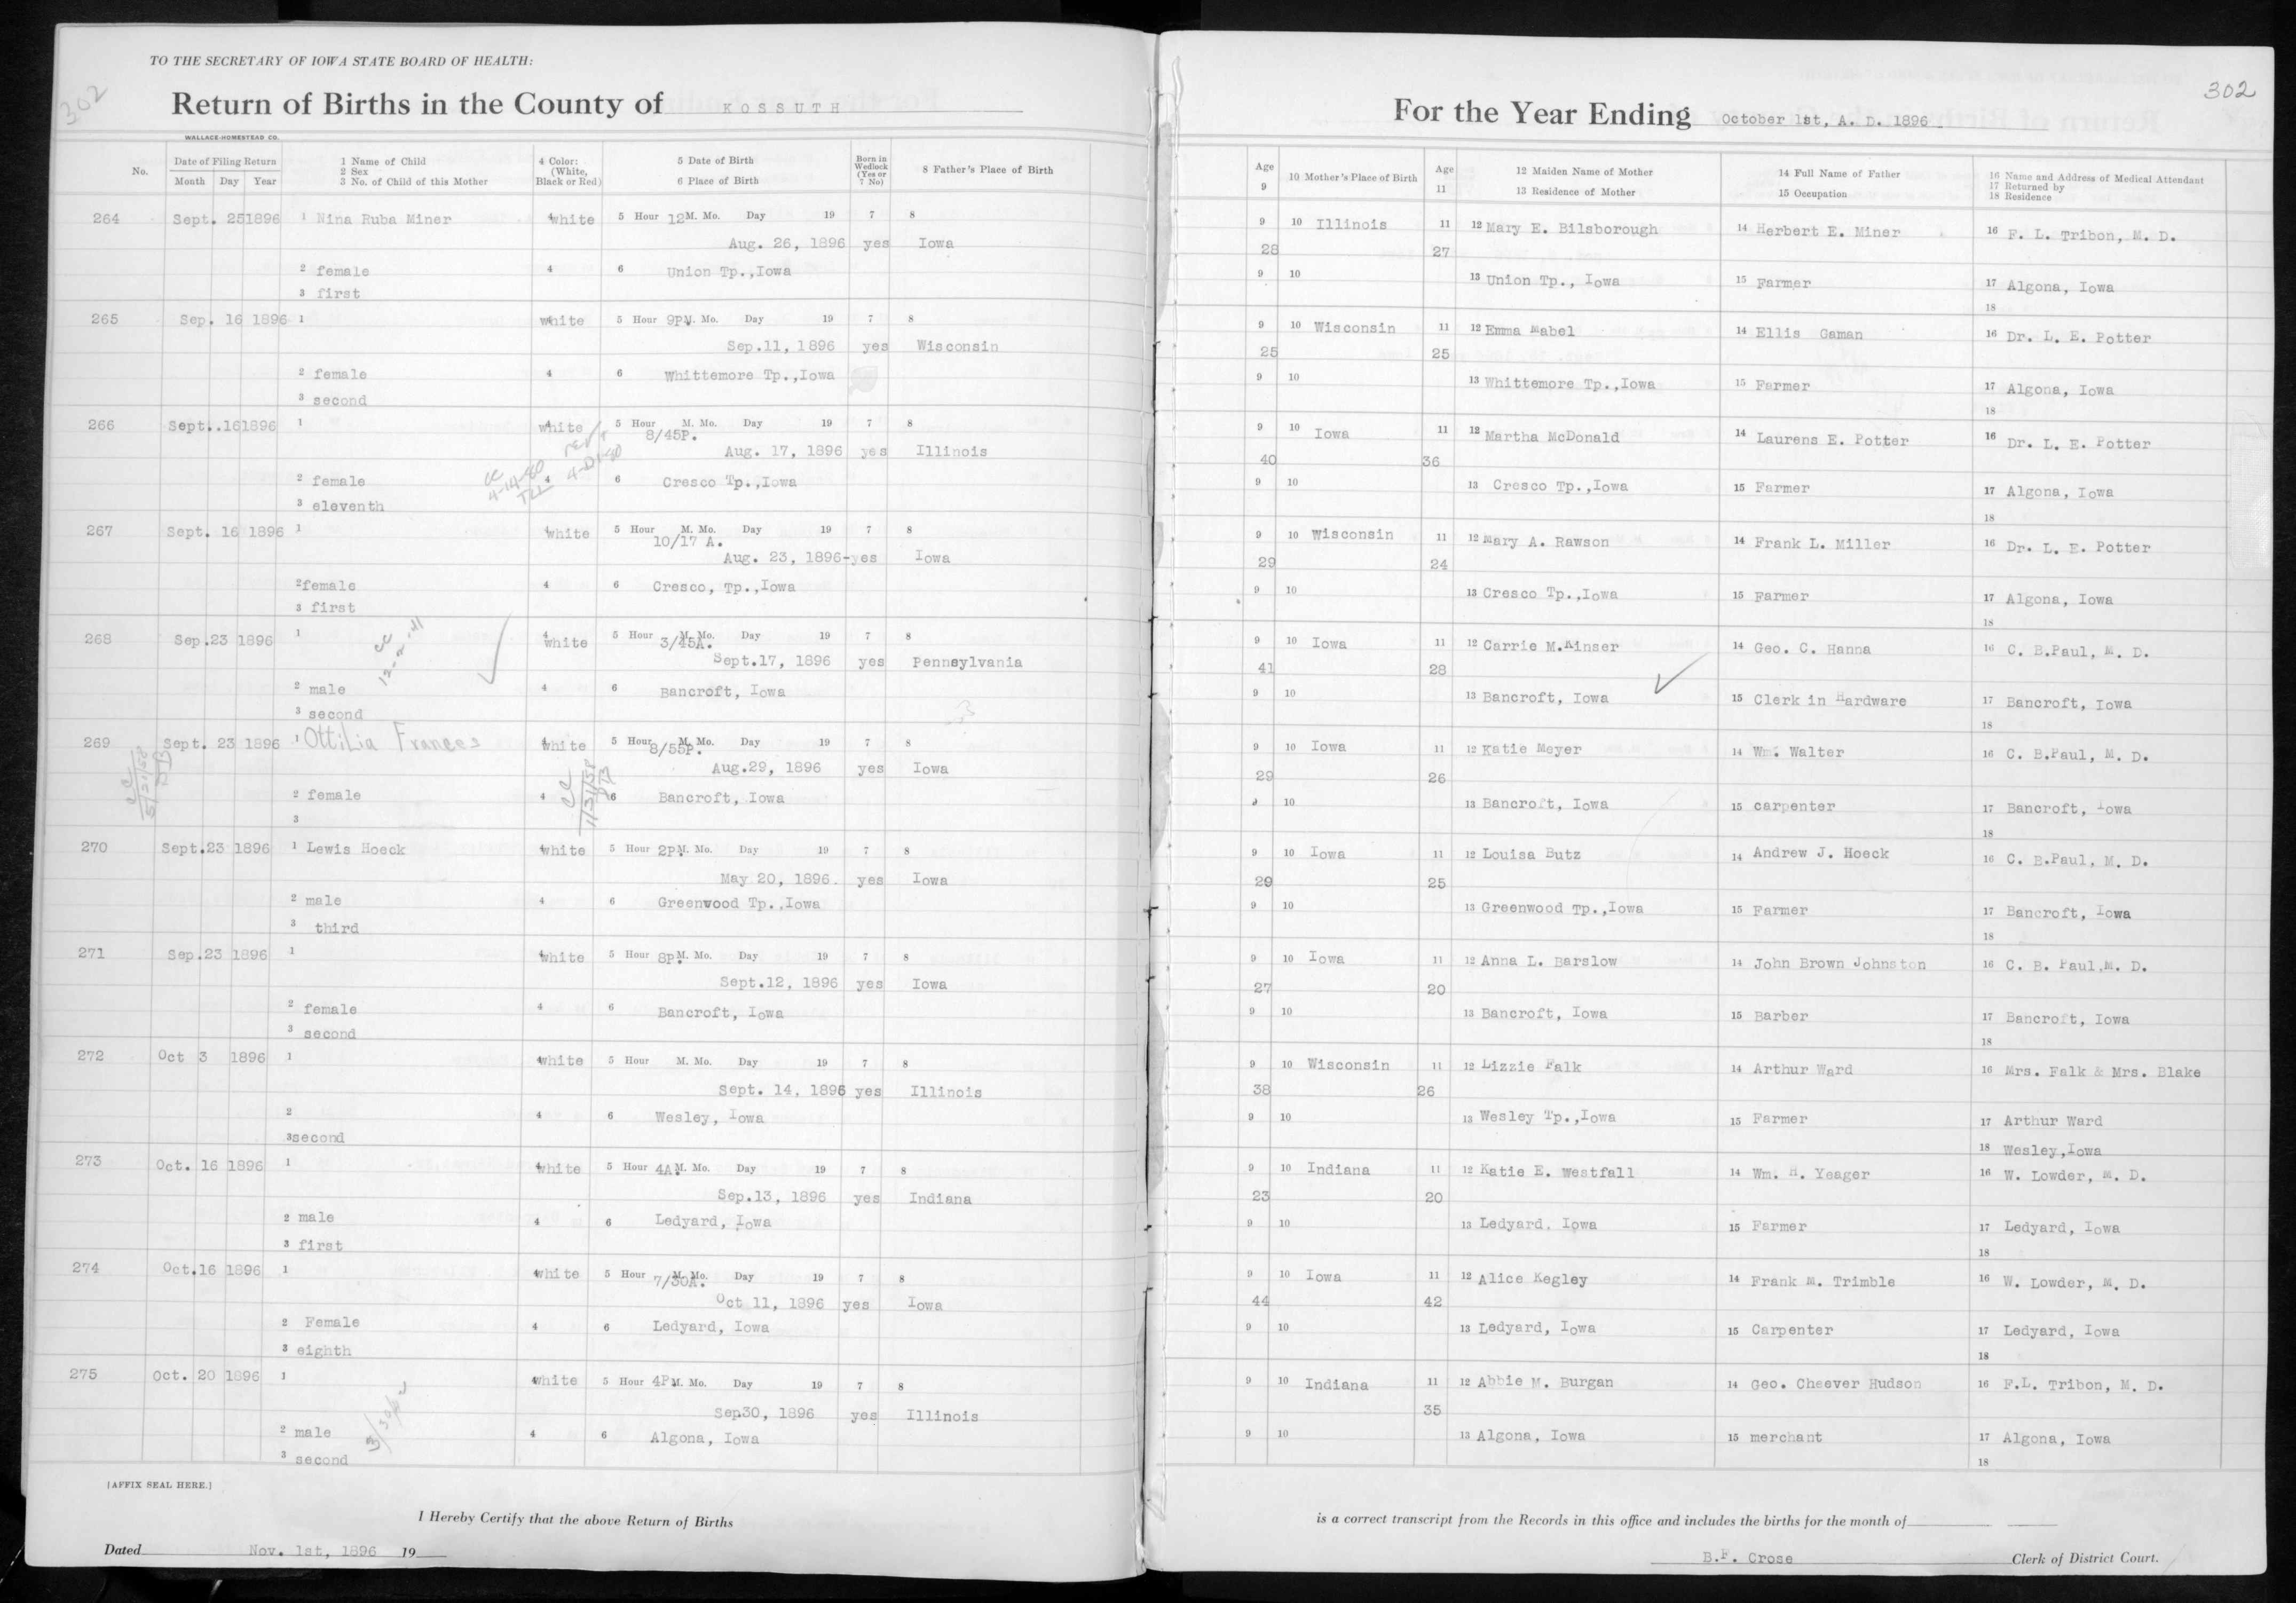 302
TO THE SECRETARY OF IOWA STATE BOARD OF HEALTH:
Return of Births in the County of KOSSUTH
WALLACE-HOMESTEAD CO.
No. Date of Filing Return Month Day Year 1 Name of Child 2 Sex 3 No. of Child of this Mother 4 Color: (White, Black or Red) 5 Date of Birth 6 Place of Birth Born in Wedlock (Yes or 7 No) 8 Father's Place of Birth
264 Sept. 25 1896 1 Nina Ruba Miner 4 white 5 Hour 12 M. Mo. Day 19 7 8
Aug. 26, 1896 yes Iowa
2 female 4 6 Union Tp.,Iowa
3 first
265 Sep. 16 1896 1 4 white 5 Hour 9P M. Mo. Day 19 7 8
Sep.11, 1896 yes Wisconsin
2 female 4 6 Whittemore Tp.,Iowa
3 second
266 Sept..16 1896 1 4 white 5 Hour M. Mo. Day 19 7 8
8/45P.
Aug. 17, 1896 yes Illinois
2 female 4 6 Cresco Tp.,Iowa
CC 4-14-80
3 eleventh
267 Sept. 16 1896 1 4 white 5 Hour M. Mo. Day 19 7 8
10/17 A.
Aug. 23, 1896-yes Iowa
2 female 4 6 Cresco, Tp.,Iowa
3 first
268 Sep.23 1896 1 4 white 5 Hour 3/45A. M. Mo. Day 19 7 8
CC 12-2-41
Sept.17, 1896 yes Pennsylvania
2 male 4 6 Bancroft, Iowa
3 second
269 Sept. 23 1896 1 Ottilia Frances 4 white 5 Hour 8/55P. M. Mo. Day 19 7 8
Aug.29, 1896 yes Iowa
2 female 4 6 Bancroft, Iowa
3
270 Sept.23 1896 1 Lewis Hoeck 4 white 5 Hour 2P M. Mo. Day 19 7 8
May 20, 1896. yes Iowa
2 male 4 6 Greenwood Tp.,Iowa
3 third
271 Sep.23 1896 1 4 white 5 Hour 8p M. Mo. Day 19 7 8
Sept.12, 1896 yes Iowa
2 female 4 6 Bancroft, Iowa
3 second
272 Oct 3 1896 1 4 white 5 Hour M. Mo. Day 19 7 8
Sept. 14, 1896 yes Illinois
2 4 6 Wesley, Iowa
3 second
273 Oct. 16 1896 1 4 white 5 Hour 4A M. Mo. Day 19 7 8
Sep.13, 1896 yes Indiana
2 male 4 6 Ledyard, Iowa
3 first
274 Oct.16 1896 1 4 white 5 Hour 7/30A. M. Mo. Day 19 7 8
Oct 11, 1896 yes Iowa
2 Female 4 6 Ledyard, Iowa
3 eighth
275 Oct. 20 1896 1 4 white 5 Hour 4P M. Mo. Day 19 7 8
Sep30, 1896 yes Illinois
2 male 4 6 Algona, Iowa
3 second
[AFFIX SEAL HERE.]
I Hereby Certify that the above Return of Births
Dated Nov. 1st, 1896 19
302
For the Year Ending October 1st, A. D. 1896
Age 9 10 Mother's Place of Birth Age 11 12 Maiden Name of Mother 13 Residence of Mother 14 Full Name of Father 15 Occupation 16 Name and Address of Medical Attendant 17 Returned by 18 Residence
9 10 Illinois 11 12 Mary E. Bilsborough 14 Herbert E. Miner 16 F. L. Tribon, M. D.
28 27
9 10 13 Union Tp., Iowa 15 Farmer 17 Algona, Iowa
18
9 10 Wisconsin 11 12 Emma Mabel 14 Ellis Gaman 16 Dr. L. E. Potter
25 25
9 10 13 Whittemore Tp.,Iowa 15 Farmer 17 Algona, Iowa
18
9 10 Iowa 11 12 Martha McDonald 14 Laurens E. Potter 16 Dr. L. E. Potter
40 36
9 10 13 Cresco Tp.,Iowa 15 Farmer 17 Algona, Iowa
18
9 10 Wisconsin 11 12 Mary A. Rawson 14 Frank L. Miller 16 Dr. L. E. Potter
29 24
9 10 13 Cresco Tp.,Iowa 15 Farmer 17 Algona, Iowa
18
9 10 Iowa 11 12 Carrie M.Kinser 14 Geo. C. Hanna 16 C. B.Paul, M. D.
41 28
9 10 13 Bancroft, Iowa 15 Clerk in Hardware 17 Bancroft, Iowa
18
9 10 Iowa 11 12 Katie Meyer 14 Wm. Walter 16 C. B.Paul, M. D.
29 26
9 10 13 Bancroft, Iowa 15 carpenter 17 Bancroft, Iowa
18
9 10 Iowa 11 12 Louisa Butz 14 Andrew J. Hoeck 16 C. B.Paul, M. D.
29 25
9 10 13 Greenwood Tp.,Iowa 15 Farmer 17 Bancroft, Iowa
18
9 10 Iowa 11 12 Anna L. Barslow 14 John Brown Johnston 16 C. B. Paul,M. D.
27 20
9 10 13 Bancroft, Iowa 15 Barber 17 Bancroft, Iowa
18
9 10 Wisconsin 11 12 Lizzie Falk 14 Arthur Ward 16 Mrs. Falk & Mrs. Blake
38 26
9 10 13 Wesley Tp.,Iowa 15 Farmer 17 Arthur Ward
18 Wesley,Iowa
9 10 Indiana 11 12 Katie E. Westfall 14 Wm. H. Yeager 16 W. Lowder, M. D.
23 20
9 10 13 Ledyard, Iowa 15 Farmer 17 Ledyard, Iowa
18
9 10 Iowa 11 12 Alice Kegley 14 Frank M. Trimble 16 W. Lowder, M. D.
44 42
9 10 13 Ledyard, Iowa 15 Carpenter 17 Ledyard, Iowa
18
9 10 Indiana 11 12 Abbie M. Burgan 14 Geo. Cheever Hudson 16 F.L. Tribon, M. D.
35
9 10 13 Algona, Iowa 15 merchant 17 Algona, Iowa
18
is a correct transcript from the Records in this office and includes the births for the month of
B.F. Crose Clerk of District Court.